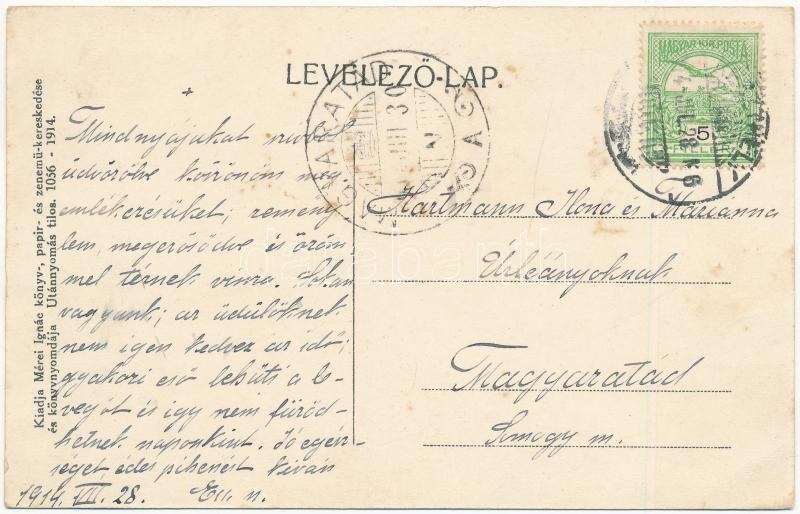 LEVELEZŐ-LAP.
Kiadja Mérei Ignác könyv-, papir- és zenemű-kereskedése
és könyvnyomdája Utánnyomás tilos. 1056 - 1914.
MAGYAR KIR. POSTA
5
MAGYARATÁD
Mindnyájukat
üdvözölve köszönöm meg
emlékezésüket; remény
lem, megerősödve és öröm
mel térnek vissza. Sokan
vagyunk; az üdülőknek
nem igen kedvez az idő;
gyakori eső lehűti a le-
vegőt és így nem füröd-
hetnek naponkint. Jó egész-
séget édes pihenést kíván
1914. VII. 28. Em. n.
Hartmann Ilona és Mariánna
Úrleányoknak
Magyaratád
Somogy m.
darabanth